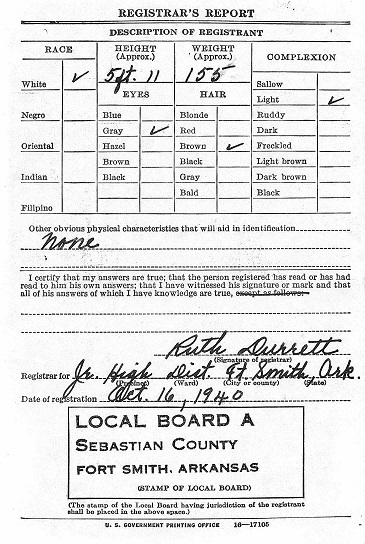 REGISTRAR'S REPORT
DESCRIPTION OF REGISTRANT
RACE HEIGHT (Approx.) WEIGHT (Approx.) COMPLEXION
White ✓ 5 ft. 11 155 Sallow
EYES HAIR Light ✓
Negro Blue Blonde Ruddy
Gray ✓ Red Dark
Oriental Hazel Brown ✓ Freckled
Brown Black Light brown
Indian Black Gray Dark brown
Bald Black
Filipino
Other obvious physical characteristics that will aid in identification
None
I certify that my answers are true; that the person registered has read or has had
read to him his own answers; that I have witnessed his signature or mark and that
all of his answers of which I have knowledge are true, except as follows:
Ruth Durrett
(Signature of registrar)
Registrar for Jr. High Dist. Ft. Smith, Ark.
(Precinct) (Ward) (City or county) (State)
Date of registration Oct. 16, 1940
LOCAL BOARD A
SEBASTIAN COUNTY
FORT SMITH, ARKANSAS
(STAMP OF LOCAL BOARD)
(The stamp of the Local Board having jurisdiction of the registrant
shall be placed in the above space.)
U. S. GOVERNMENT PRINTING OFFICE 16—17105